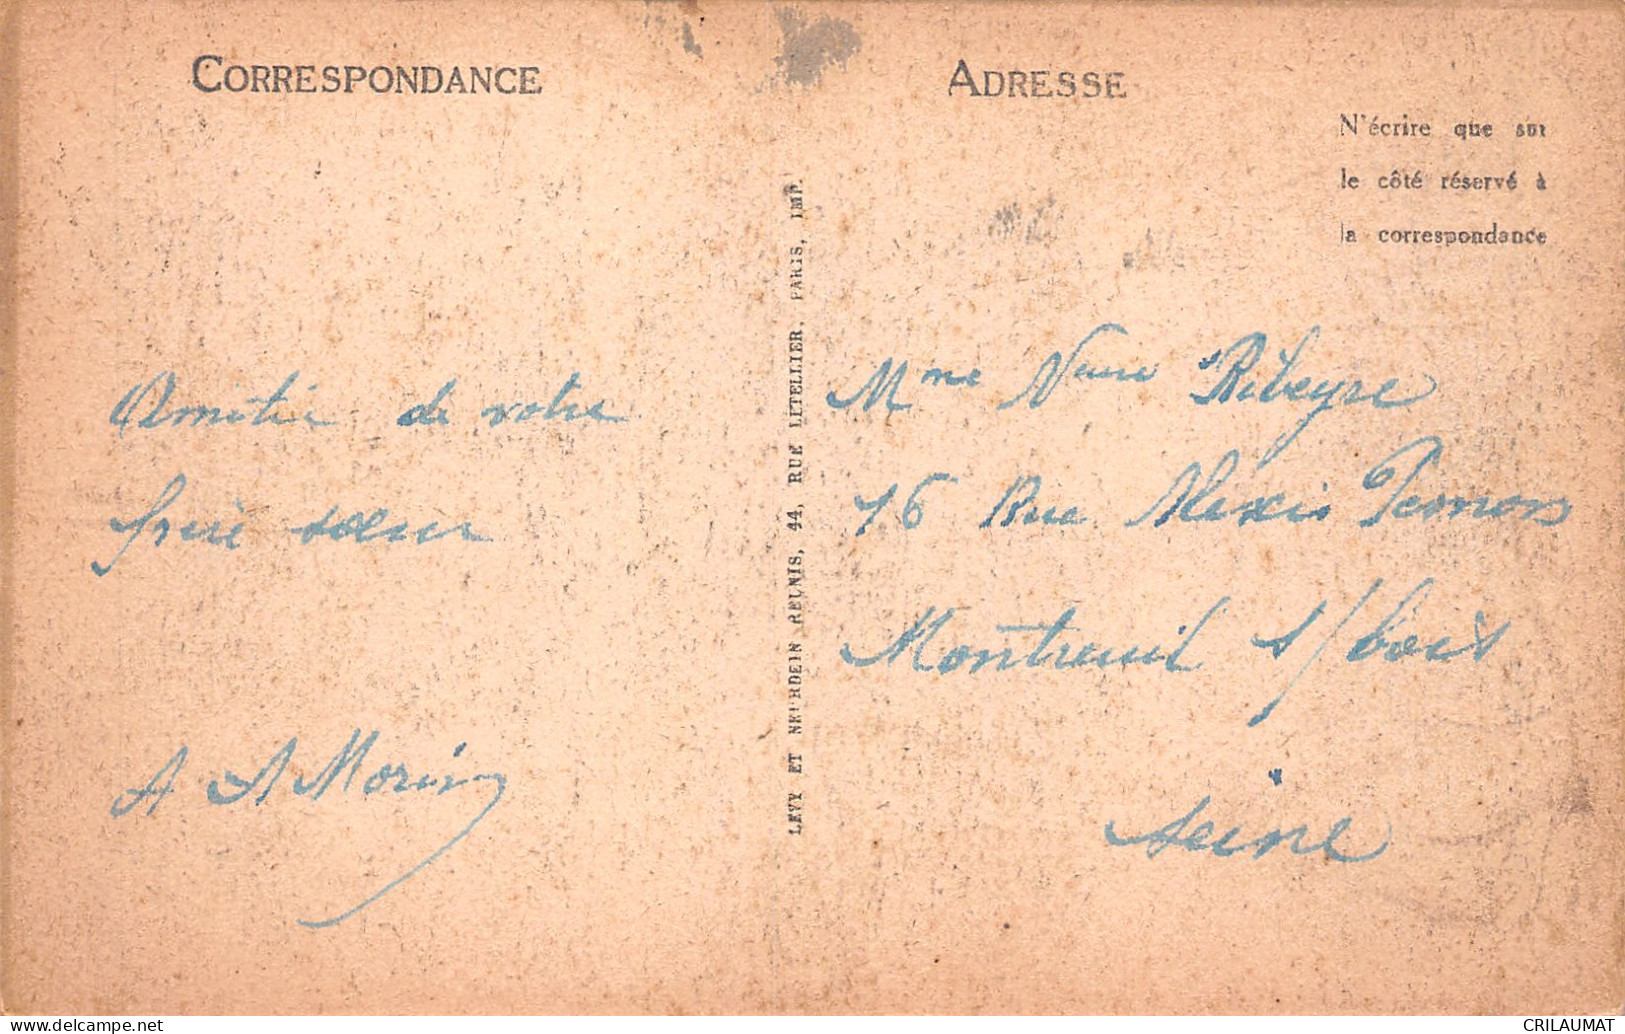 CORRESPONDANCE
Amitié de votre
frère sœur
A A Morin
LEVY ET NEURDEIN REUNIS, 44, RUE LETELLIER, PARIS, IMP.
ADRESSE
N'écrire que sur
le côté réservé à
la correspondance
Mme Veuve Ribeyre
76 Rue Alexis Pesnon
Montreuil s/bois
Seine
delcampe.net
CRILAUMAT